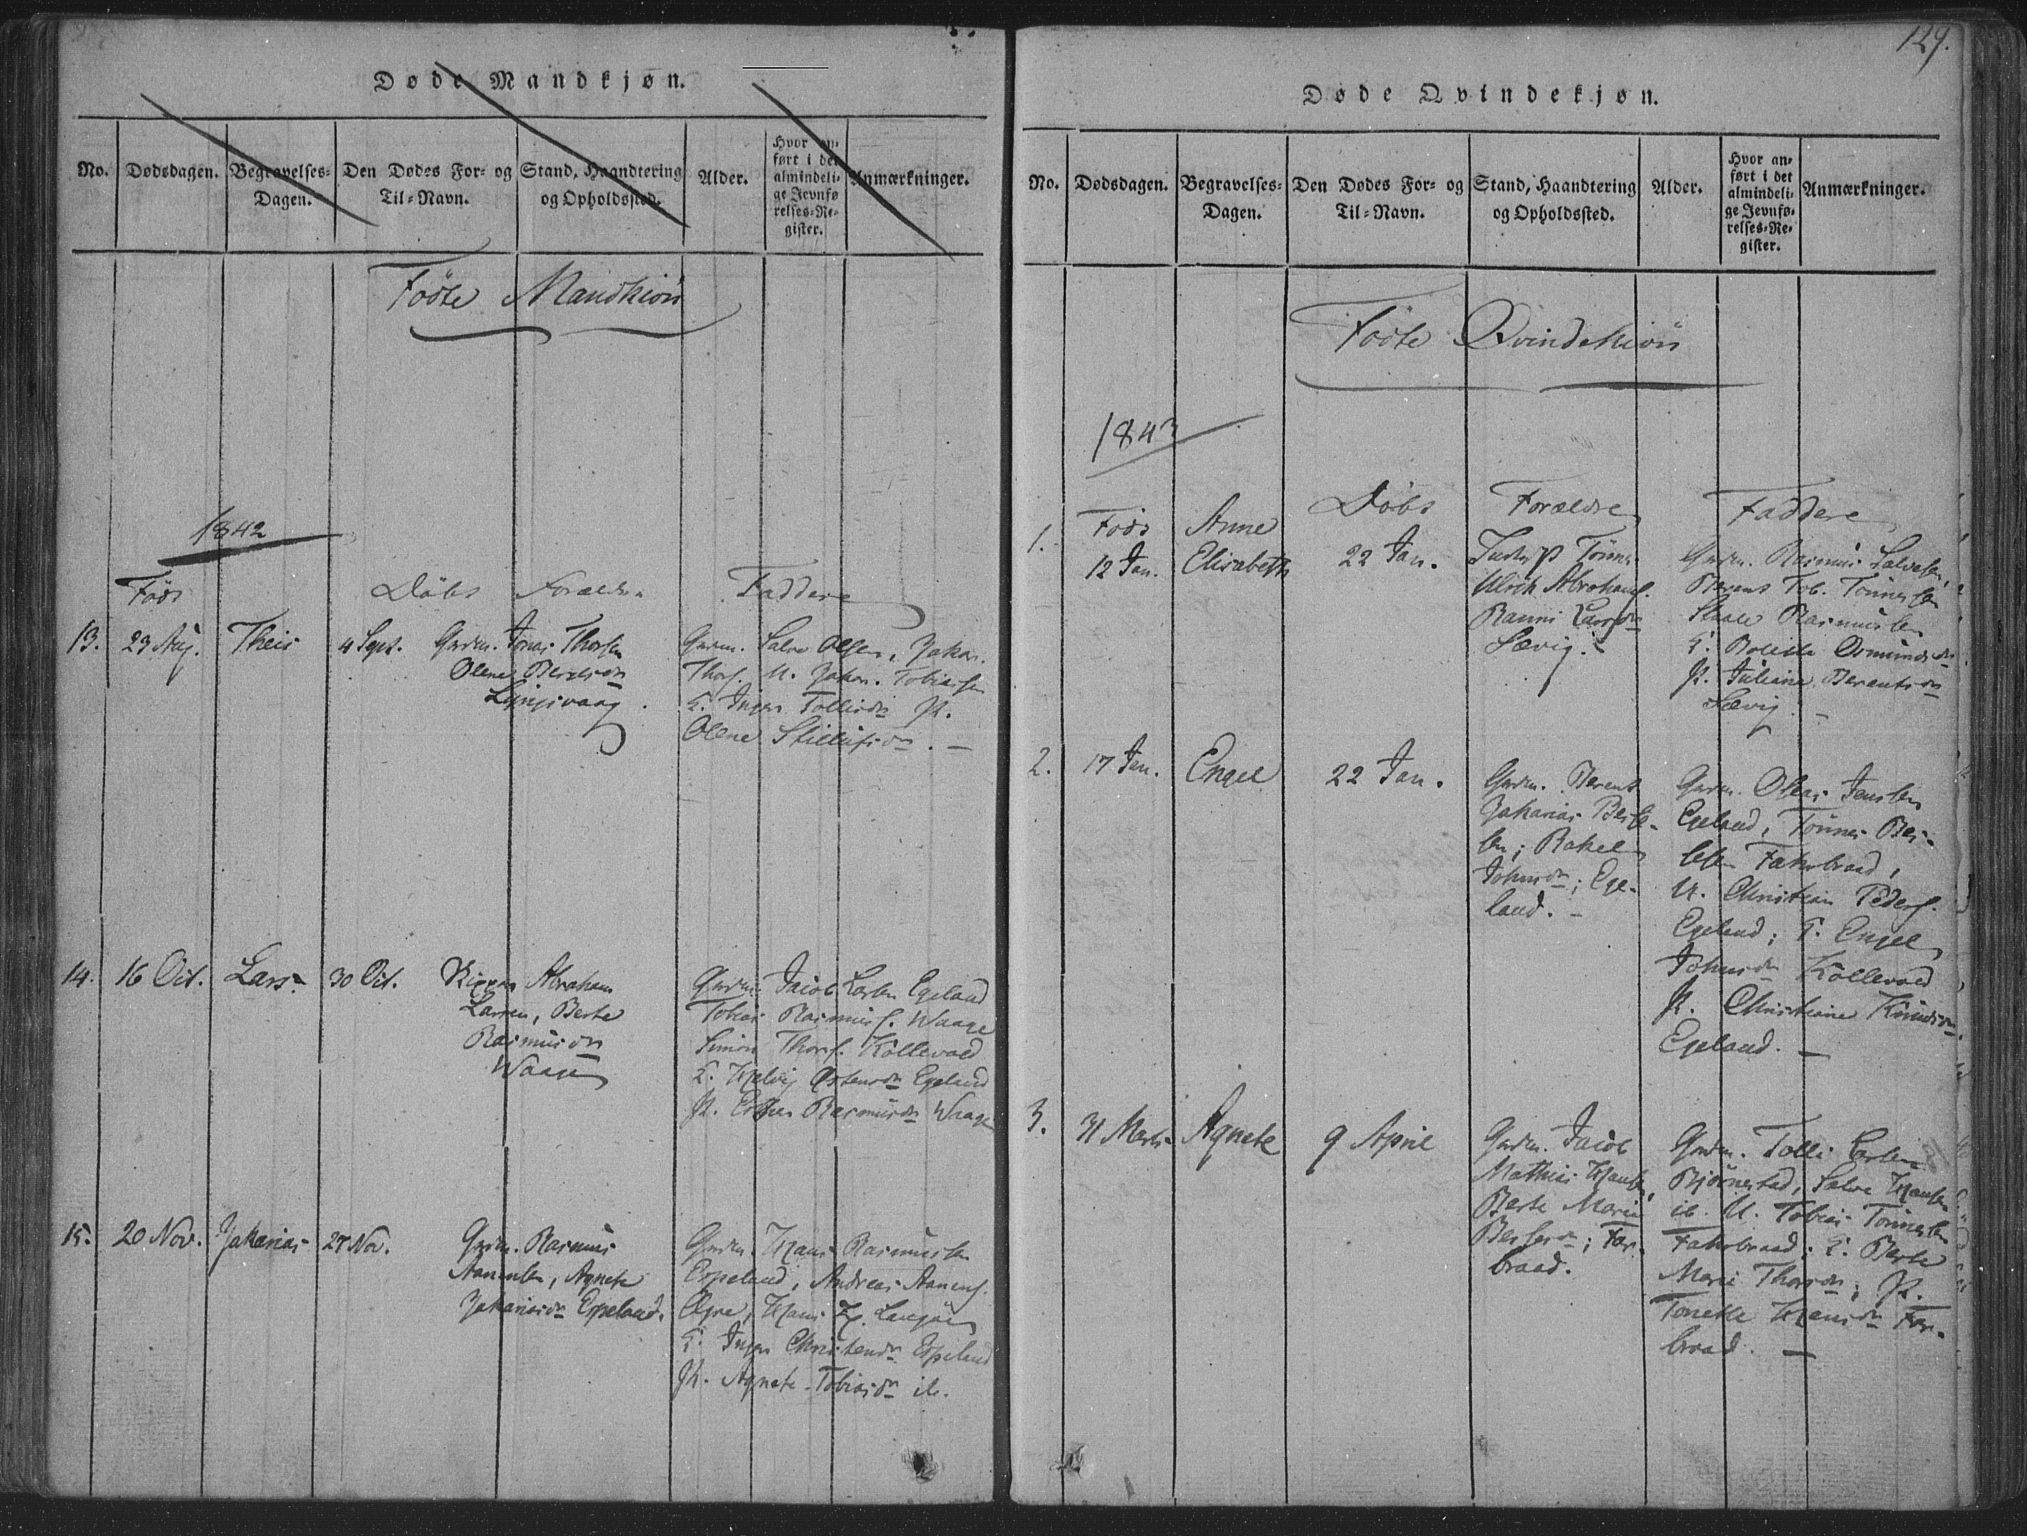 Døde Mandkjøn.
No.
Dødsdagen.
Begravelses-
Dagen.
Den Dødes For- og
Til-Navn.
Stand, Haandtering
og Opholdssted.
Alder.
Hvor an-
ført i det
almindeli-
ge Jevnfø-
relses-Re-
gister.
Anmærkninger.
Födte Mandkiön
1842
Föds
Döbs Forældre Faddere
13. 23 Aug. Theis 4 Sept.
Gaardm. Jonas Thorsen
Olene
Lyngsvaag.
Gaardm. Salve Olsen, Zakar.
Thors. U. Zakar. Tobiassen
G. Inger Tollisdr P.
Olene
14. 16 Oct. Lars 30 Oct.
Abraham
Larsen, Berte
Rasmusdr
Waage
Gaardm. Jacob Larsen Egeland
Tobias Rasmuss. Waage
Simon Thors. Kollevold
G. Helvig Østensdr Egeland
P. Rasmusdr Waage
15. 20 Nov. Zakarias 27 Nov.
Gaardm. Rasmus
Aanensen, Agnete
Zakariasdr Espeland.
Gaardm. Hans Rasmussen
Espeland, Andreas Aanens.
Hans
G. Inger Christensdr Espeland
P. Agnete Tobiasdr ib.
129.
Døde Qvindekjøn.
No.
Dødsdagen.
Begravelses-
Dagen.
Den Dødes For- og
Til-Navn.
Stand, Haandtering
og Opholdssted.
Alder.
Hvor an-
ført i det
almindeli-
ge Jevnfø-
relses-Re-
gister.
Anmærkninger.
Födte Qvindekiön
1843
Döbs Forældre Faddere
1. Föds Anne
12 Jan. Elisabeth 22 Jan.
Tönnes
Ulrik Abrahams.
Ranni Larsdr
Sævig.
Gaardm. Rasmus Salvesen,
Berent Tob. Tönnessen
Rasmussen
G. Bolette Osmundsdr
P. Juliane Berentsdr
Sævig.
2. 17 Jan. Engel 22 Jan.
Gaardm. Berent
Zakarias Berse-
sen; Rakel
Johnsdr; Ege-
land.
Gaardm. Olai Jensen
Egeland, Tönnes Ber-
sesen Fahrbraad,
U. Christian Peders.
Egeland; G. Engel
Johnsdr Kollevold
P. Christiane Knudsdr
Egeland.
3. 31 Marts Agnete 9 April
Gaardm. Jacob
Mathias Hansen,
Berte Marie
Bersesdr; Far-
braad.
Gaardm. Tolli
Björnestad, Salve Hansen
ib. U. Tobias Tönnessen
Fahrbraad; G. Berte
Marie Thorsdr; P.
Tonette Hansdr Far-
braad.